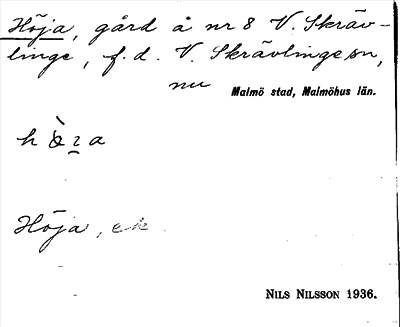 Höja, gård å nr 8 V. Skräv-
linge, f. d. V. Skrävlinge sn,
nu Malmö stad, Malmöhus län.
Höja, ek
NILS NILSSON 1936.